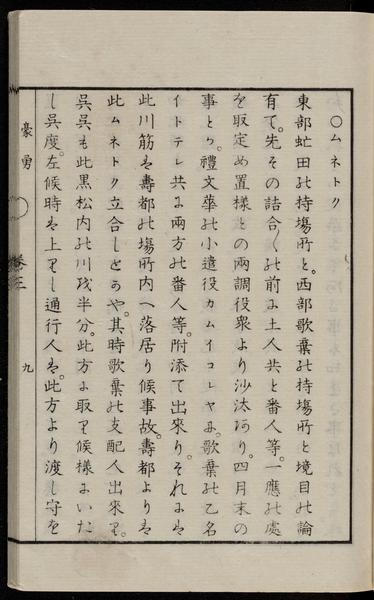 〇ムネトク
東部虻田の持塲所と。西部歌棄の持塲所と境目の論
有て。先その詰合〱の前に土人共と番人等。一應の處
を取定め置様との兩調役衆より沙汰あり。四月末の
事とか。禮文華の小遣役カムイコレヤに。歌棄の乙名
イトテレ共に兩方の番人等。附添て出來り。それには
此川筋は壽都の塲所内へ落居り候事故。壽都よりは
此ムネトク立合しとかや。其時歌棄の支配人出來り。
呉呉も此黒松内の川残半分。此方に取り候様にいた
し呉度。左候時は上りし通行人は。此方より渡し守を
豪勇
卷三
九